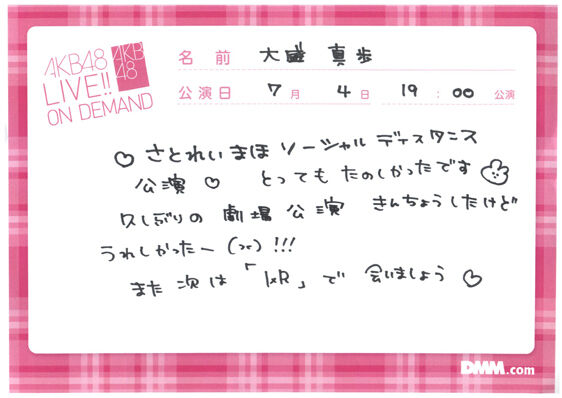 AKB48
LIVE!!
ON DEMAND
AKB
48
名前 大盛 真歩
公演日 7月 4日 19:00 公演
♡ さとれいまほ ソーシャル ディスタンス
公演 ♡ とっても たのしかったです
久しぶりの 劇場 公演 きんちょうしたけど
うれしかったー !!!
また 次は 「 」で 会いましょう ♡
DMM.com